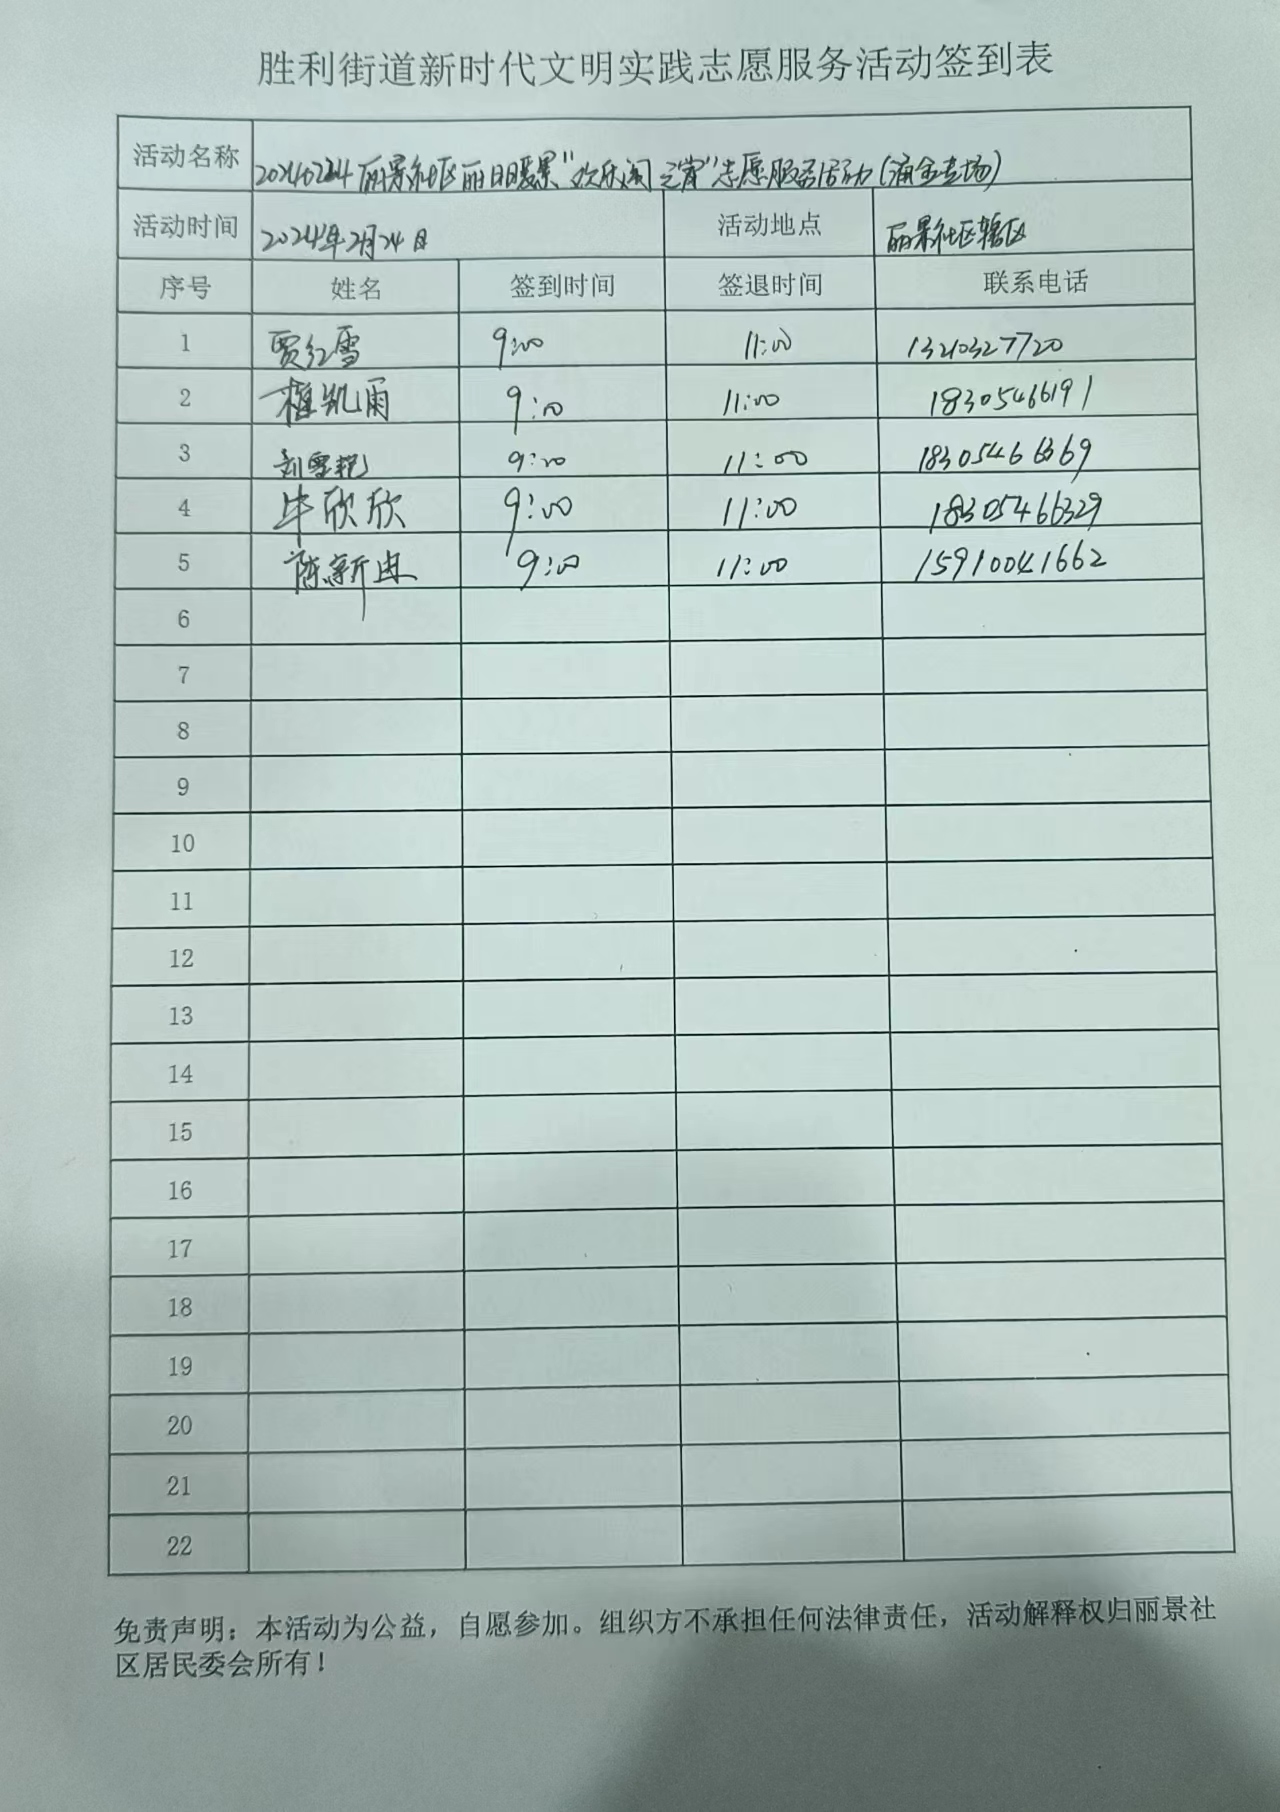 胜利街道新时代文明实践志愿服务活动签到表
活动名称 20240224丽景社区丽日暖景“欢乐闹元宵”志愿服务活动(涌金专场)
活动时间 2024年2月24日 活动地点 丽景社区辖区
序号 姓名 签到时间 签退时间 联系电话
1 贾红雪 9:00 11:00 13210327720
2 崔凯雨 9:00 11:00 18305466191
3 刘雪艳 9:00 11:00 18305466369
4 牛欣欣 9:00 11:00 18305466329
5 陈新 9:00 11:00 15910041662
6
7
8
9
10
11
12
13
14
15
16
17
18
19
20
21
22
免责声明：本活动为公益，自愿参加。组织方不承担任何法律责任，活动解释权归丽景社
区居民委会所有！